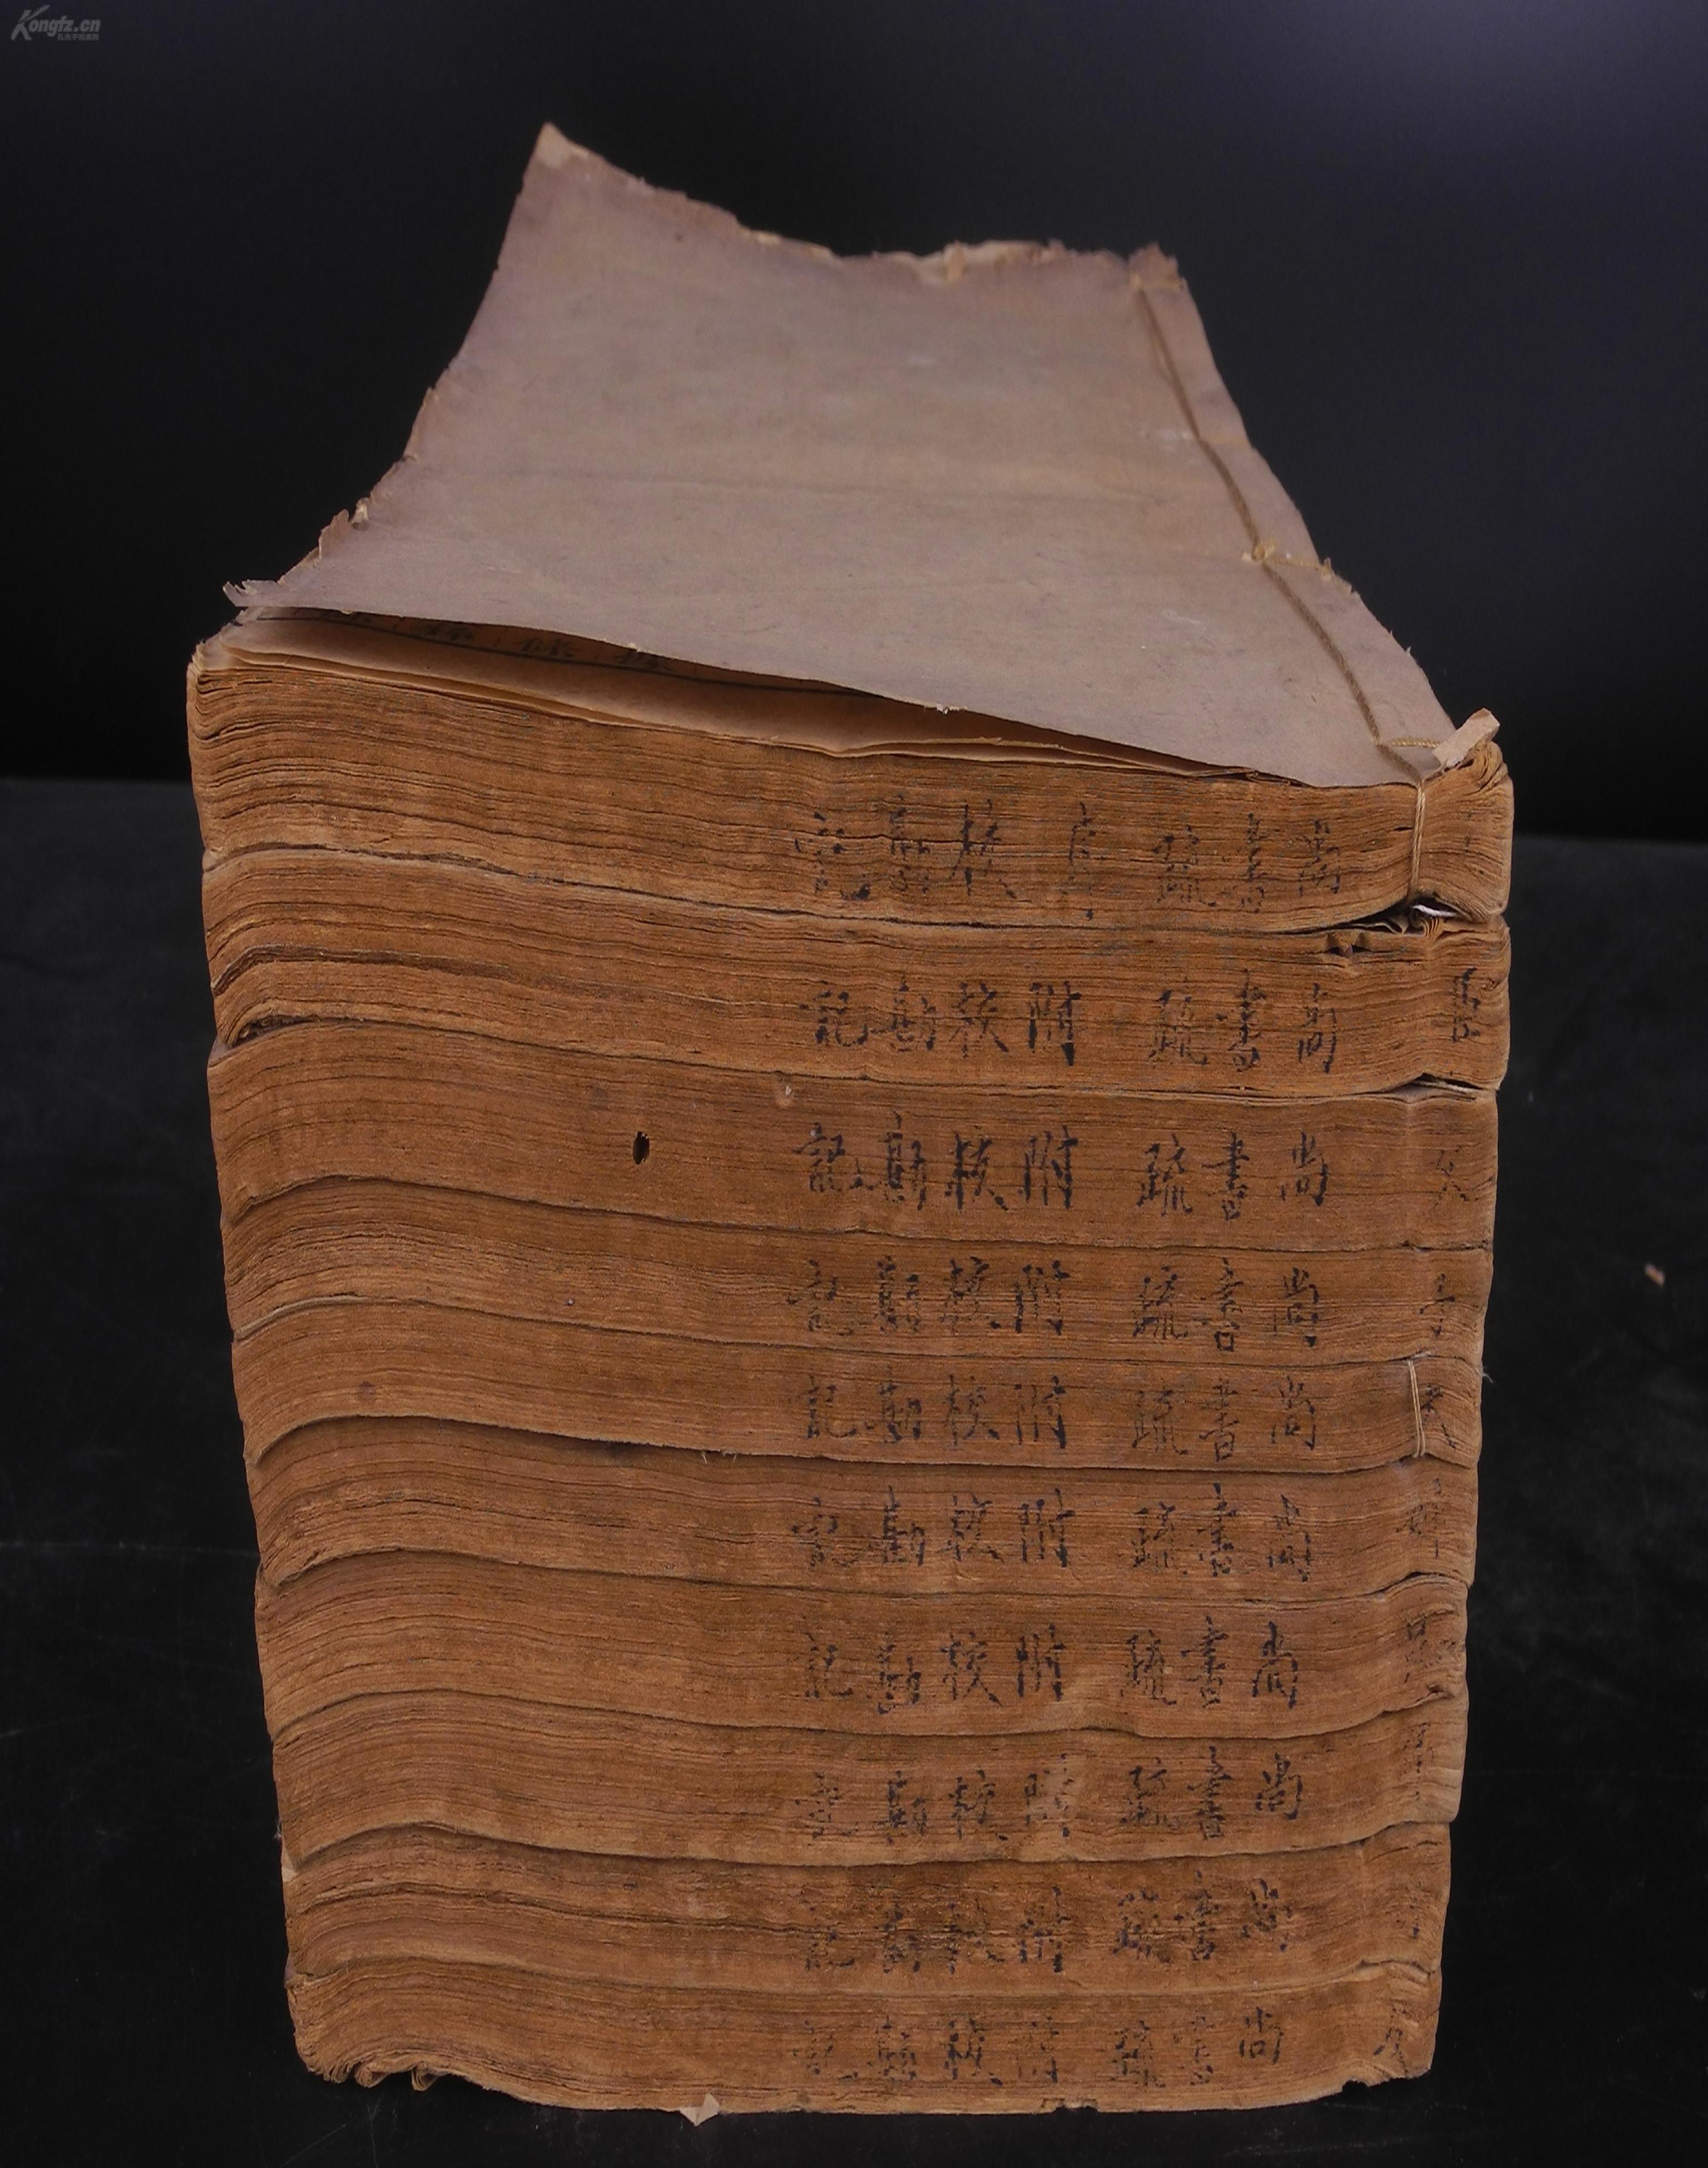 Kongfz.cn
尚書疏 附校勘記
尚書疏 附校勘記
尚書疏 附校勘記
尚書疏 附校勘記
尚書疏 附校勘記
尚書疏 附校勘記
尚書疏 附校勘記
尚書疏 附校勘記
尚書疏 附校勘記
尚書疏 附校勘記